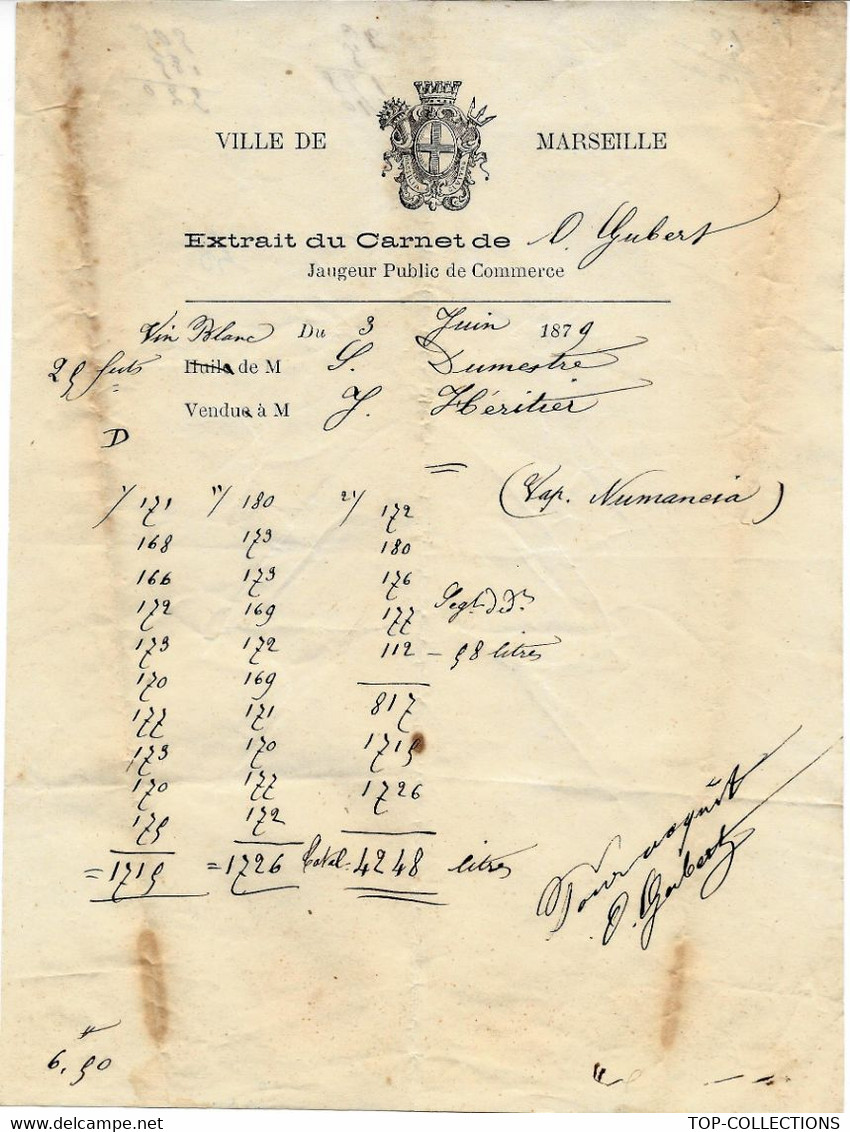 VILLE DE MARSEILLE
Extrait du Carnet de O. Gubert
Jaugeur Public de Commerce
Vin Blanc Du 3 Juin 1879
25 futs Huile de M S. Dumestre
Vendue à M J. Héritier
D
(Vap. Numancia)
1/ 171 11/ 180 21/ 172
168 173 180
166 173 176
172 169 177
173 172 112 – 58 litres
170 169 817
177 171 1715
173 170 1726
170 177
175 172
= 1715 = 1726 Total = 4248 litres
Pour acquit
O. Gubert
6,50
TOP-COLLECTIONS
delcampe.net